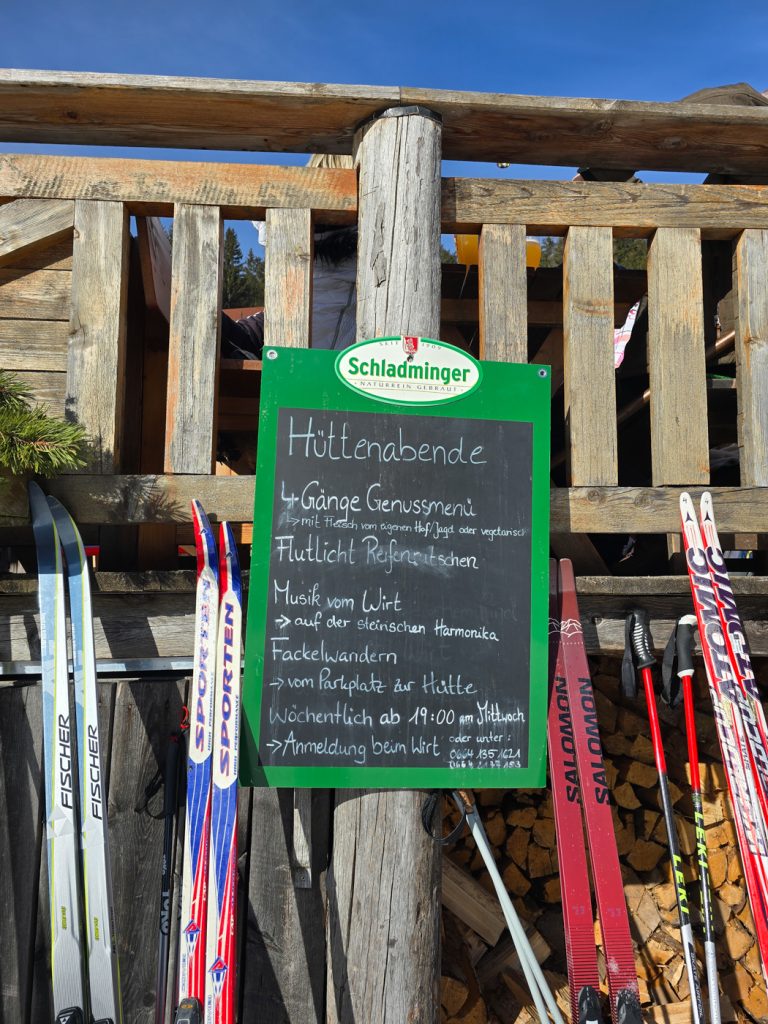 SEIT 1909
Schladminger
NATURREIN GEBRAUT
Hüttenabende
4 Gänge Genussmenü
↳ mit Fleisch vom eigenen Hof/Jagd oder vegetarisch
Flutlicht Reifenrutschen
Musik vom Wirt
→ auf der steirischen Harmonika
Fackelwandern
→ vom Parkplatz zur Hütte
Wöchentlich ab 19:00 am Mittwoch
→ Anmeldung beim Wirt oder unter:
0664 1351621
FISCHER
FISCHER
SPORTEN
SPORTEN
SALOMON
SALOMON
ATOMIC
ATOMIC
LEKI
LEKI